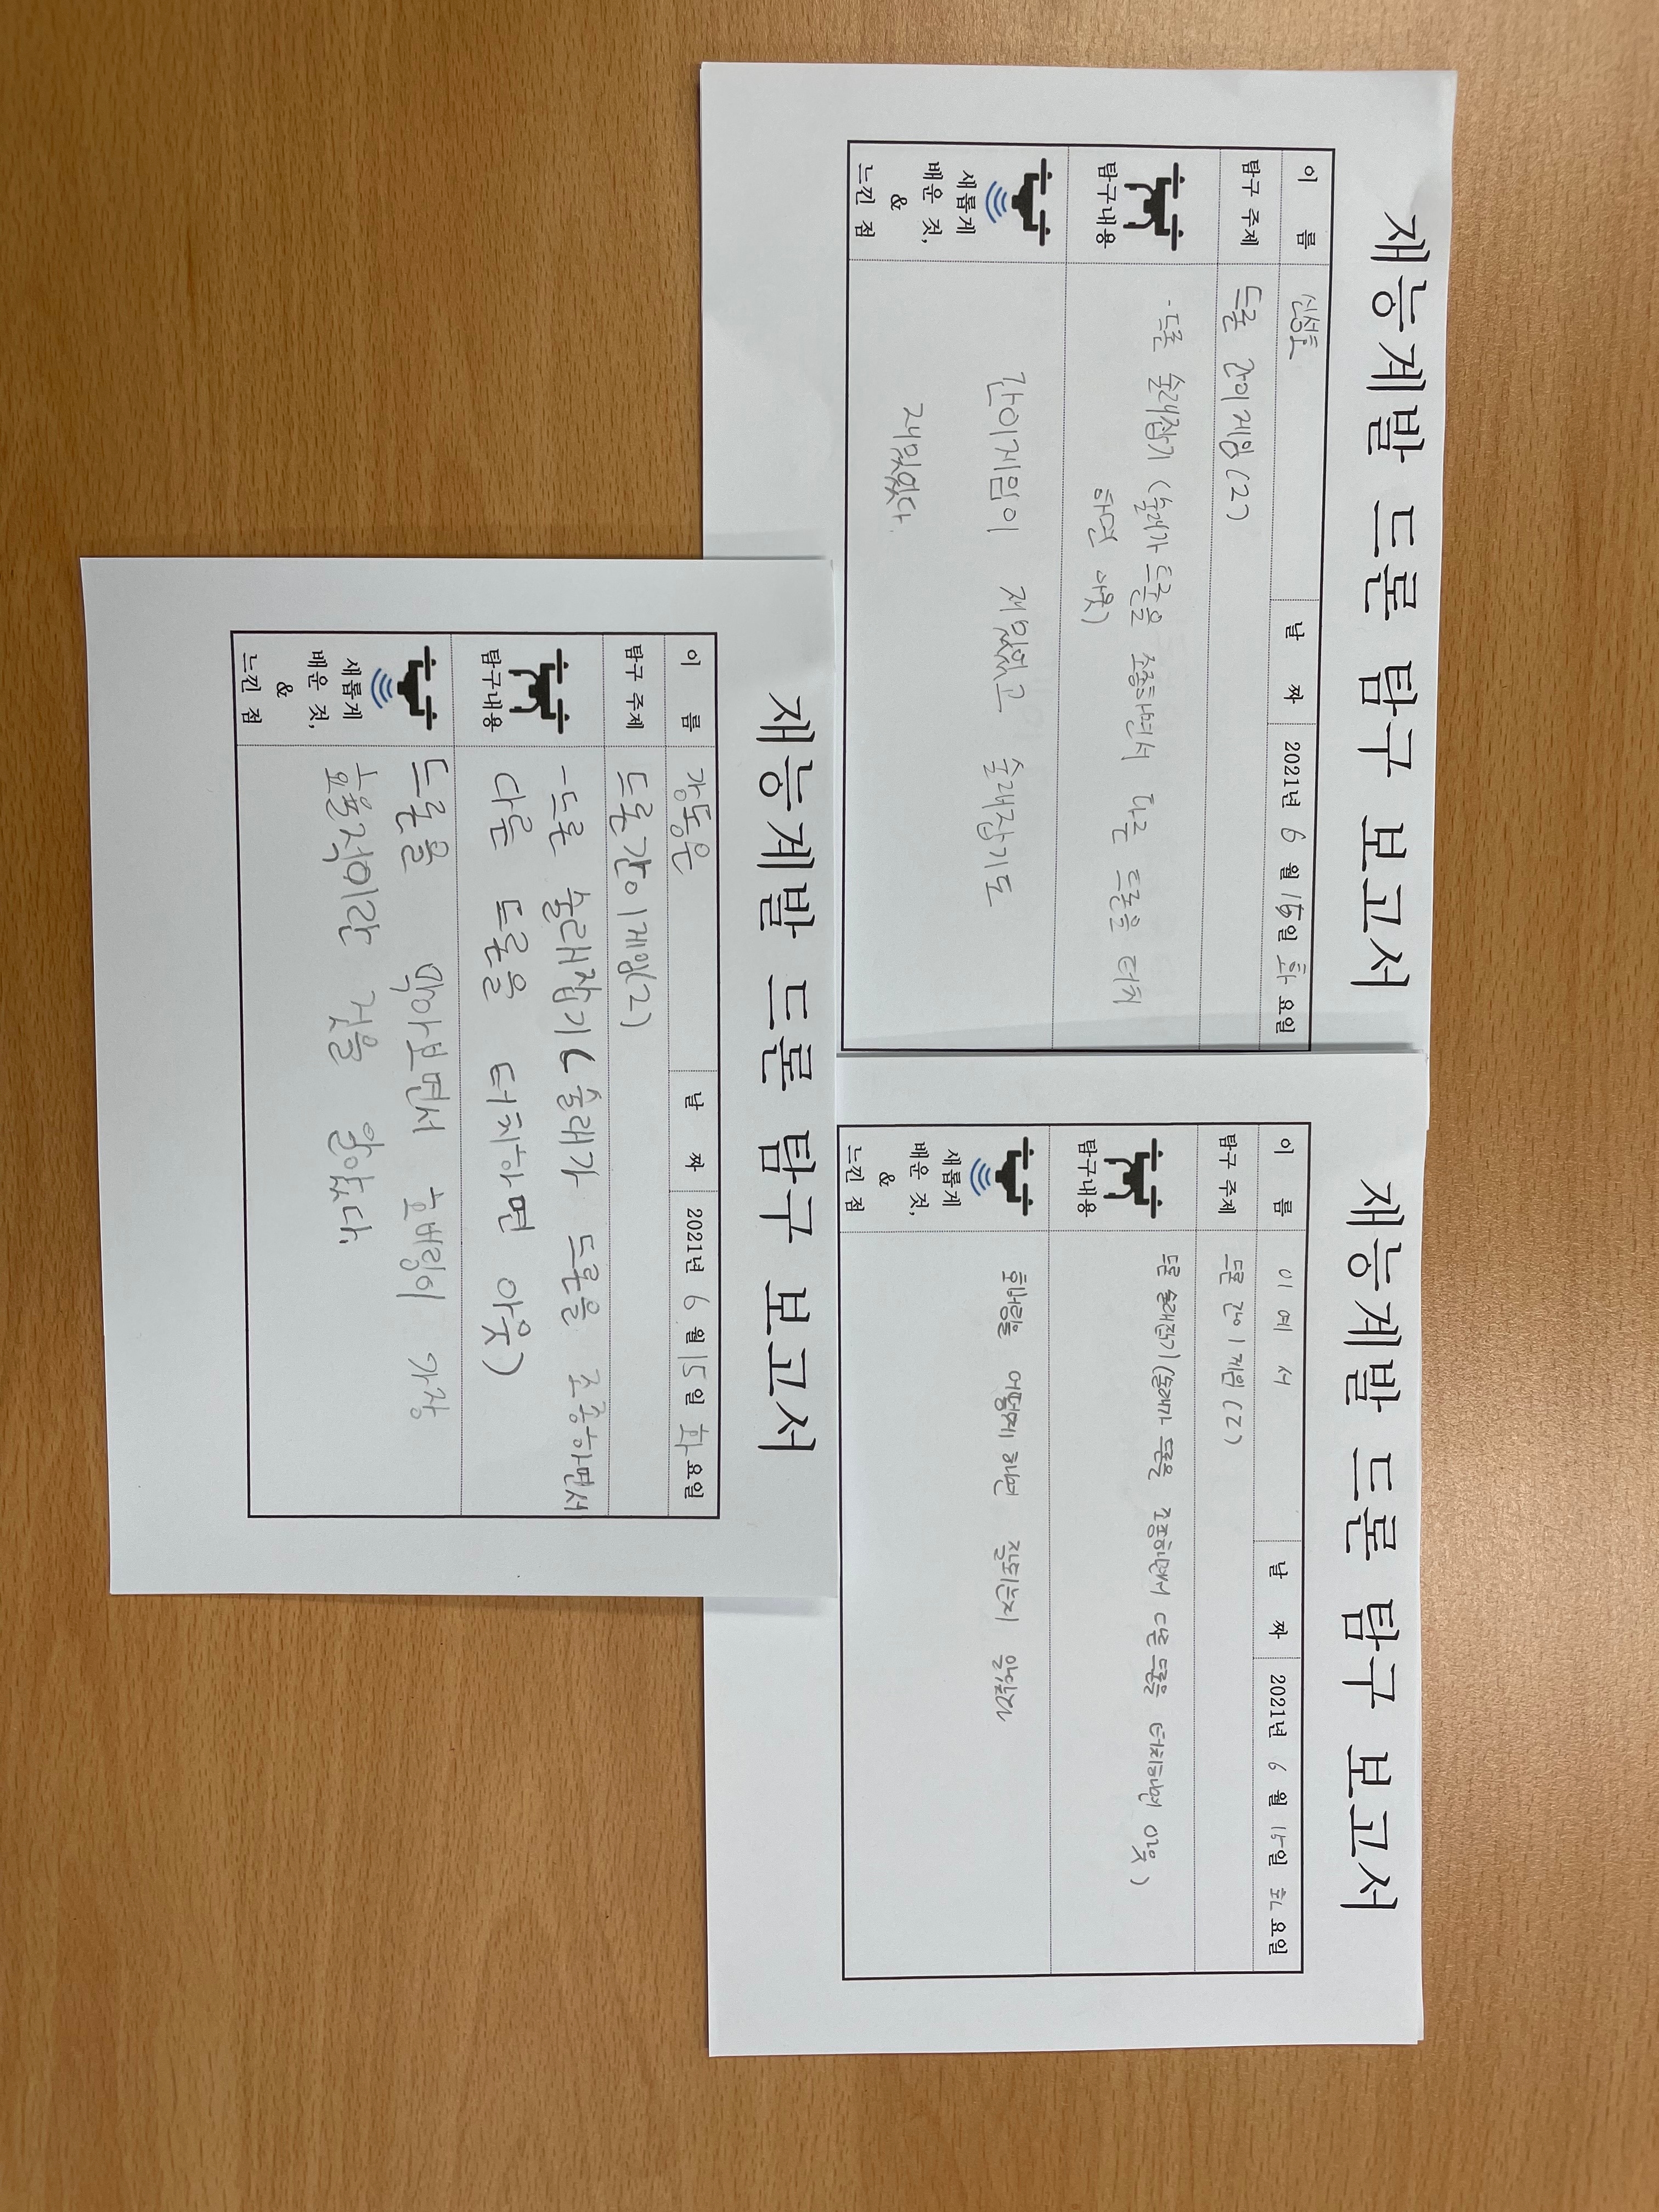 재능계발 드론 탐구 보고서
이 름 신성호 날 짜 2021년 6 월 15일 화 요일
탐구 주제 드론 간이게임(2)
탐구내용 - 드론 술래잡기 (술래가 드론을 조종하면서 다른 드론을 터치
하면 아웃)
새롭게
배운 것,
&
느낀 점
간이게임이 재밌었고 술래잡기도
재밌었다.
재능계발 드론 탐구 보고서
이 름 이 예 서 날 짜 2021년 6 월 15일 화 요일
탐구 주제 드론 간이 게임 (2)
탐구내용 드론 술래잡기(술래가 드론을 조종하면서 다른 드론을 터치하면 아웃)
새롭게
배운 것,
&
느낀 점
호버링을 어떻게 하면 잘되는지 알았다
재능계발 드론 탐구 보고서
이 름 강동운 날 짜 2021년 6 월 15일 화 요일
탐구 주제 드론간이게임(2)
탐구내용 - 드론 술래잡기(술래가 드론을 조종하면서
다른 드론을 터치하면 아웃)
새롭게
배운 것,
&
느낀 점
드론을 막아보면서 호버링이 가장
효율적이란 것을 알았다.